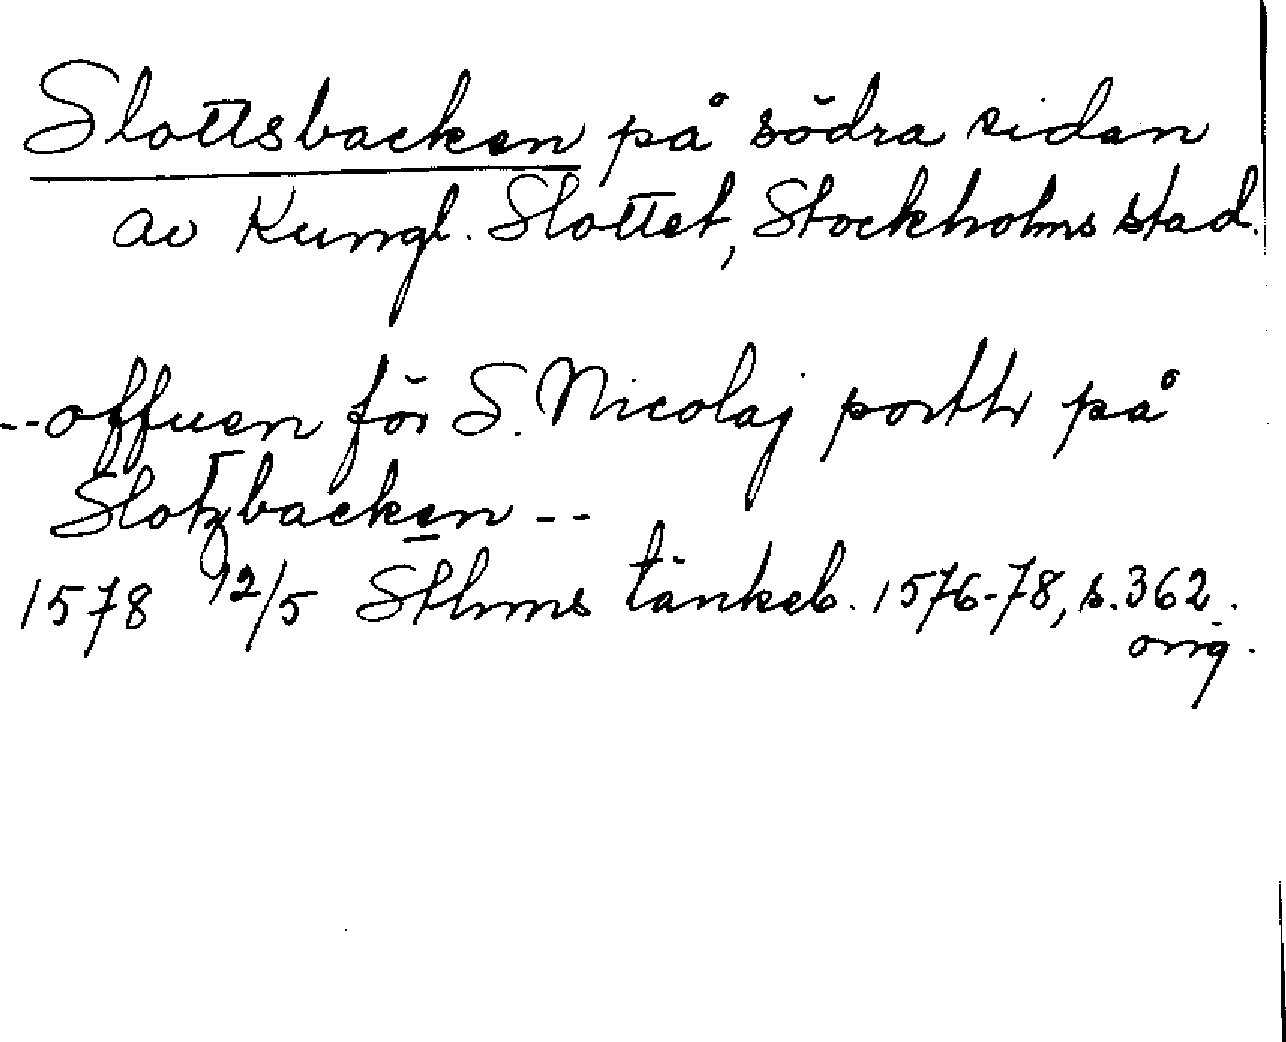 Slottsbacken på södra sidan
av Kungl. Slottet, Stockholms stad.
--offuen för S. Nicolaj porth på
Slotzbacken --
1578 12/5 Sthms tänkeb. 1576-78, s. 362.
orig.